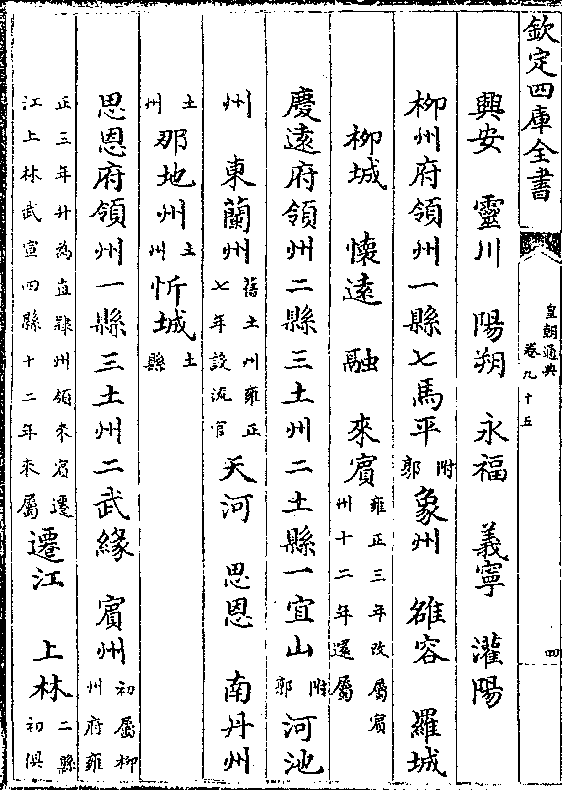 欽定四庫全書
皇朝通典
卷九十五
四
興安 靈川 陽朔 永福 義寧 灌陽
柳州府領州一縣七馬平附郭象州 雒容 羅城
柳城 懷遠 融 來賓雍正三年改屬賓州十二年還屬
慶遠府領州二縣三土州二土縣一宜山附郭河池
州 東蘭州舊土州雍正七年設流官天河 思恩 南丹州
土州那地州土州忻城土縣
思恩府領州一縣三土州二武緣 賓州初屬柳州府雍
正三年升為直隸州領來賓遷江上林武宣四縣十二年來屬遷江 上林二縣初俱